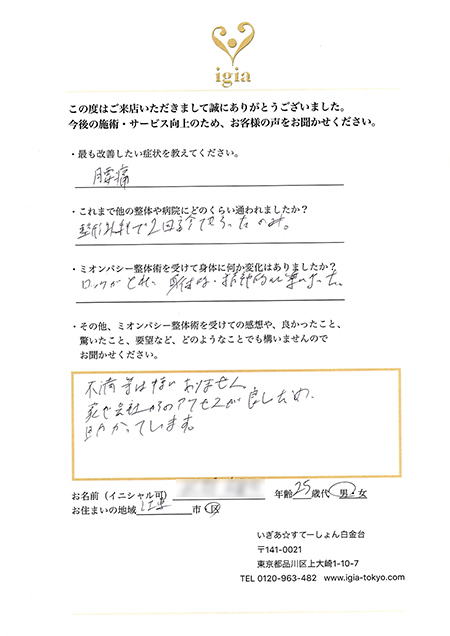 igia
この度はご来店いただきまして誠にありがとうございました。
今後の施術・サービス向上のため、お客様の声をお聞かせください。
・最も改善したい症状を教えてください。
腰痛
・これまで他の整体や病院にどのくらい通われましたか？
整形外科で2回診てもらったのみ。
・ミオンパシー整体術を受けて身体に何か変化はありましたか？
ロックがとれ、身体的・精神的に楽になった。
・その他、ミオンパシー整体術を受けての感想や、良かったこと、
驚いたこと、要望など、どのようなことでも構いませんので
お聞かせください。
不満等は特にありません。
家や会社からのアクセスが良いため、
助かっています。
お名前（イニシャル可） 年齢 25 歳代 男・女
お住まいの地域 江東 市 区
いぎあ☆すてーしょん白金台
〒141-0021
東京都品川区上大崎1-10-7
TEL 0120-963-482 www.igia-tokyo.com